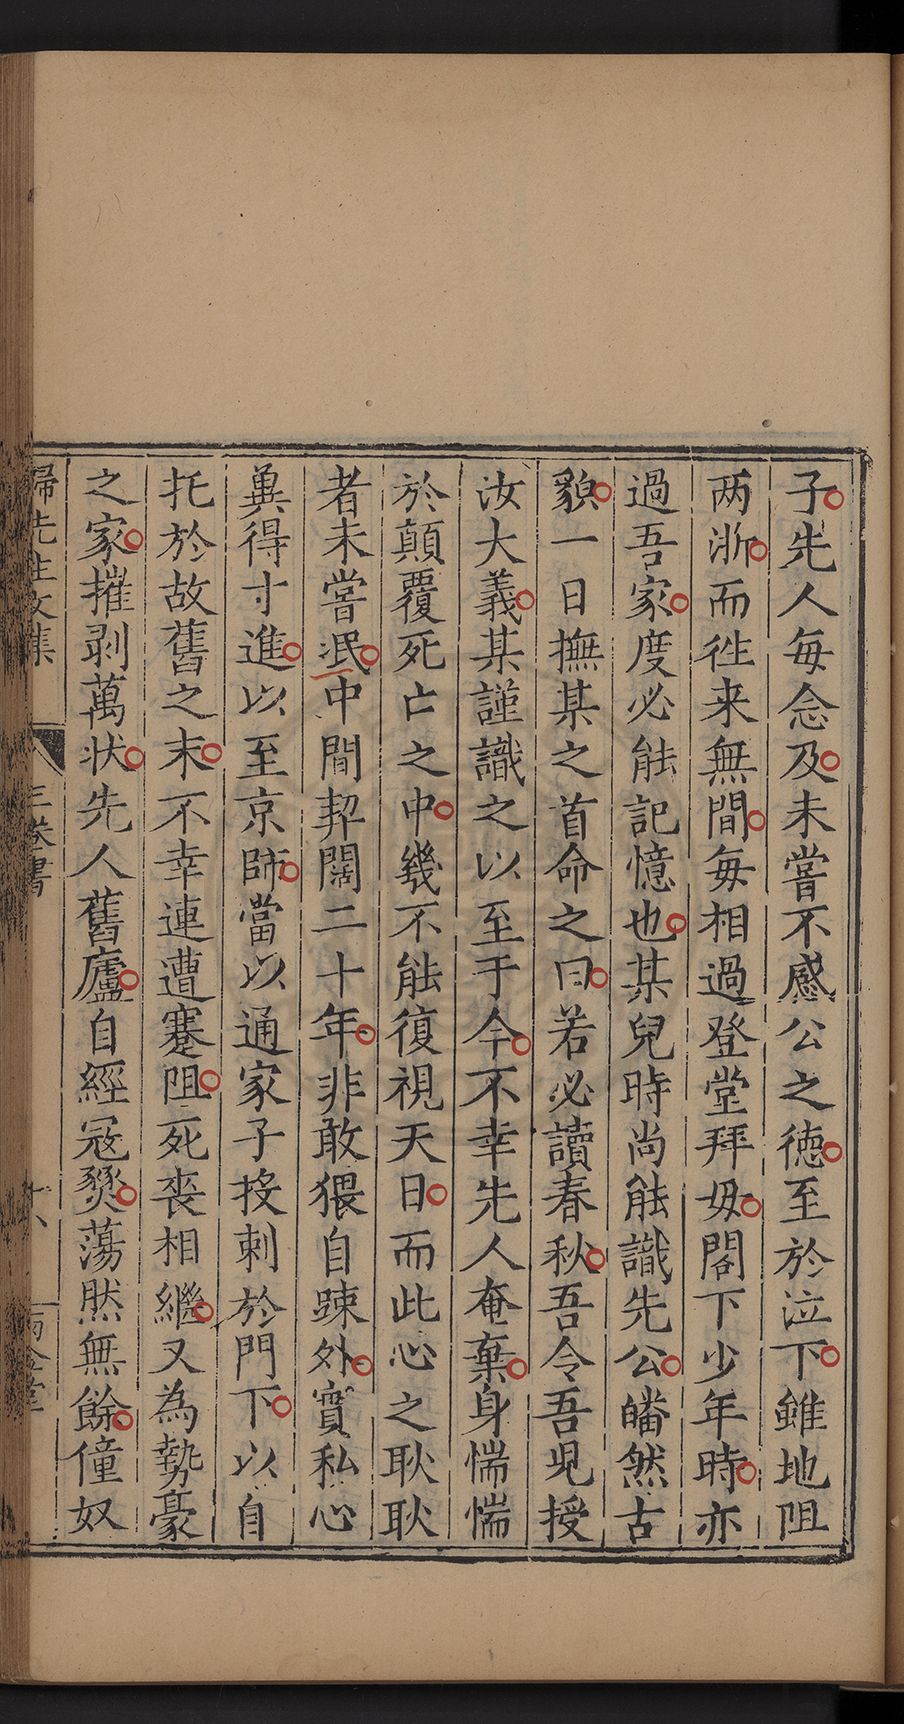 子先人每念及未嘗不感公之德至於泣下雖地阻
两浙而徃来無間每相過登堂拜毋閣下少年時亦
過吾家度必能記憶也某兒時尚能識先公皤然古
貌一日撫某之首命之曰若必讀春秋吾令吾児授
汝大義某謹識之以至于今不幸先人奄棄身惴惴
於顛覆死亡之中幾不能復視天日而此心之耿耿
者未嘗泯中間契闊二十年非敢猥自踈外實私心
兾得寸進以至京師當以通家子投刺於門下以自
托於故舊之末不幸連遭蹇阻死丧相繼又為勢豪
之家摧剥萬状先人舊廬自經宼燹蕩然無餘僮奴
歸先生文集 三卷書 十八